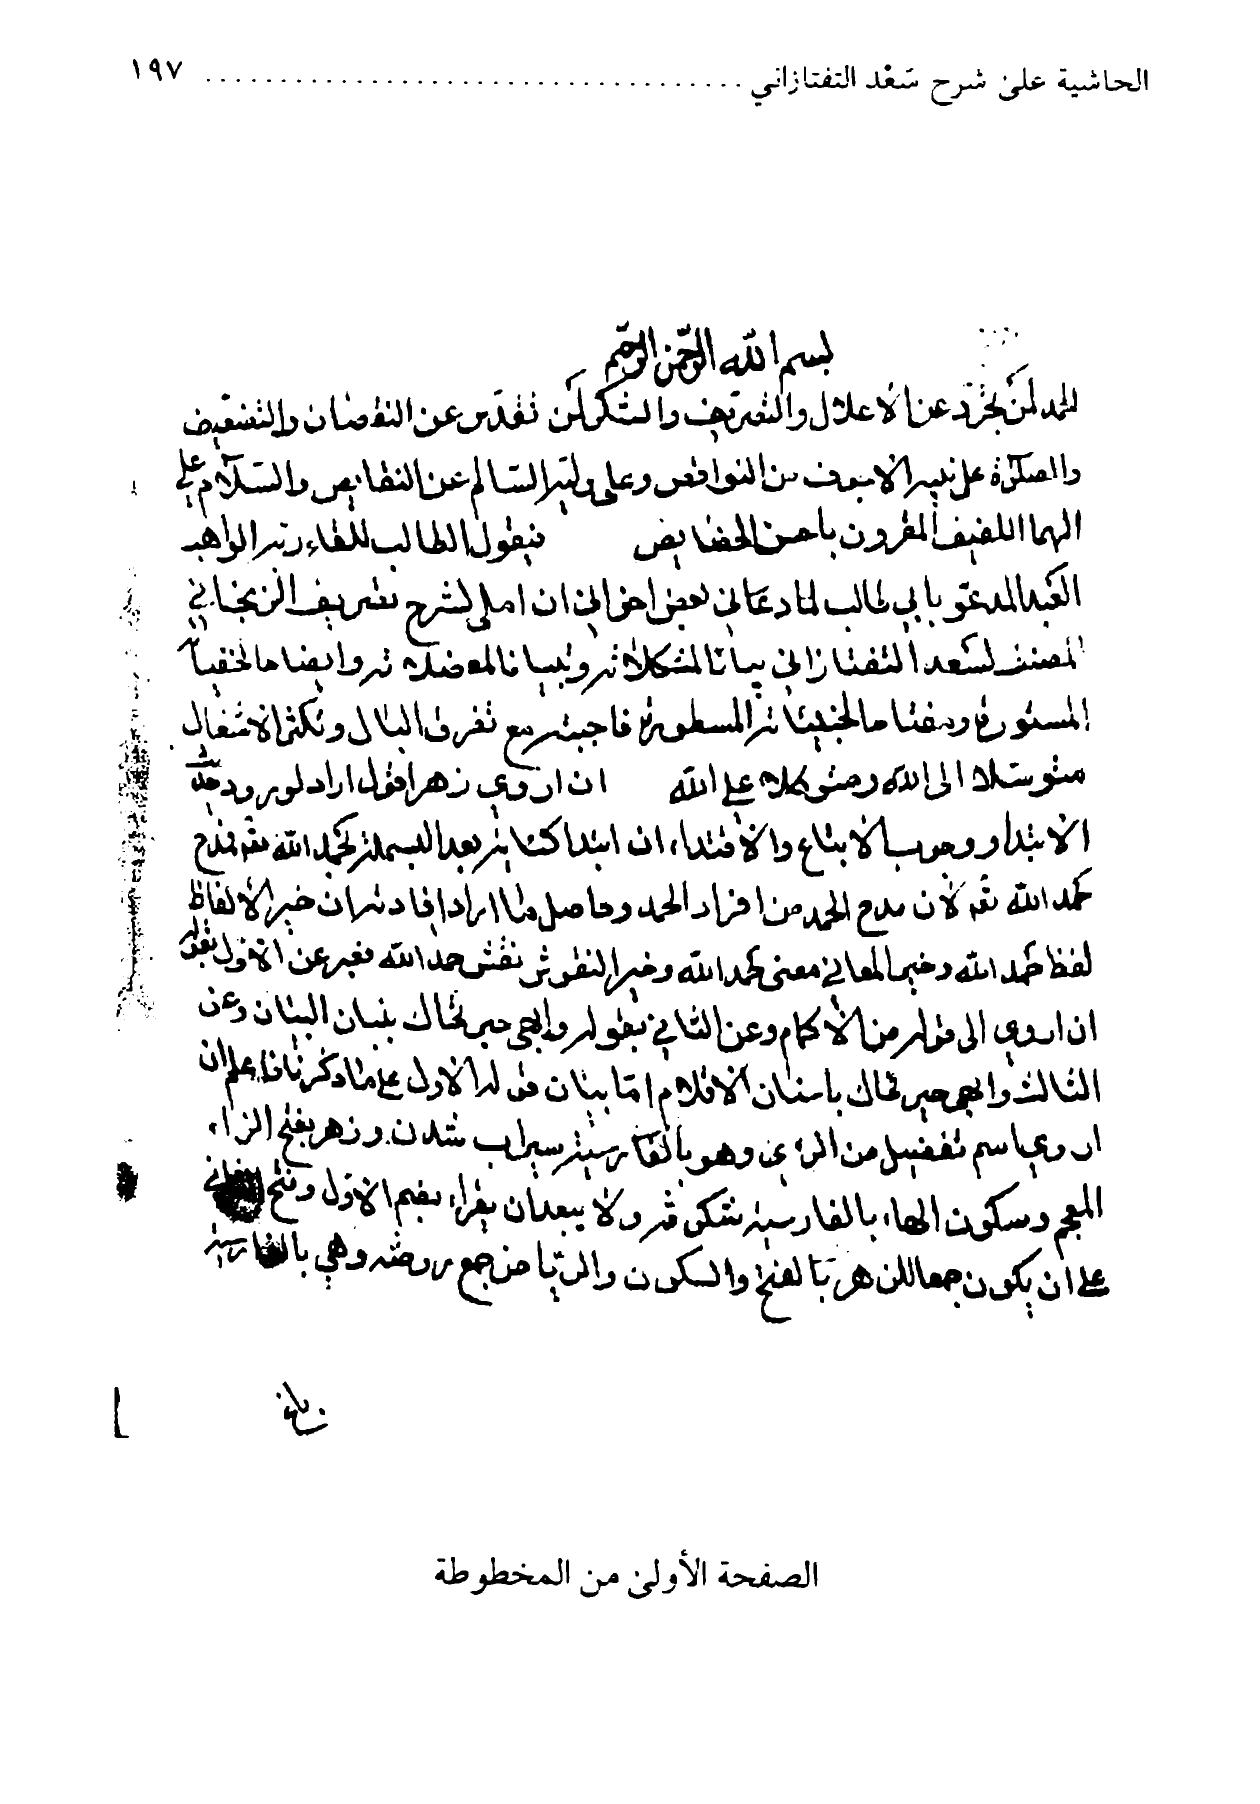 الحاشية على شرح سَعْد التفتازاني ........................................ ١٩٧
بسم الله الرّحمن الرّحيم
الحمد لمن تجرّد عن الاعلال والتصريف والشكر لمن تقدّس عن النقصان والتضعيف
والصلاة على نبيه الاجوف من النواقص وعلى وليه السالم عن النقايص والسّلام على
الهما اللفيف المقرون باحسن الخصايص فيقول الطالب للقاء ربه الواهب
العبد المدعو بابي طالب لما دعاني بعض اخواني ان املي لشرح تصريف الزنجاني
المصنف لسعد التفتازاني بيانا لمشكلاته وتبيانا لمعضلاته وايضاحا لخفياته
المستورة ومفتاحا لخبيئاته المسطورة فاجبته مع تفرق البال وتكثر الاشغال
متوسلا الى الله ومتوكلا على الله ان اروي زهر اقول اراد لورود حديث
الابتداء ووجوب الاتباع والاقتداء ان ابتدا كتابه بعد البسملة بحمد الله تعه فمدح
حمد الله تعه لان مدح الحمد من افراد الحمد وحاصل ما اراد افادته ان خير الالفاظ
لفظ حمد الله وخير المعاني معنى حمد الله وخير النقوش نقش حمد الله فعبر عن الاول بقوله
ان اروي الى قوله من الاكمام وعن الثاني بقوله وابهى حبر تحاك ببنان البيان وعن
الثالث وابهى حبر تحاك باسنان الاقلام امّا بيان قوله الاول على ما ذكرنا فاعلم ان
اروي اسم تفضيل من الري وهو بالفارسية سيراب شدن وزهر بفتح الزاء
المعجم وسكون الهاء بالفارسية شكوفه ولا يبعد ان يقراء بضم الاول وفتح الثاني
على ان يكون جمعا للزهرة بالفتح والسكون والرياض جمع روضه وهي بالفارسية
باغ
الصفحة الأولى من المخطوطة